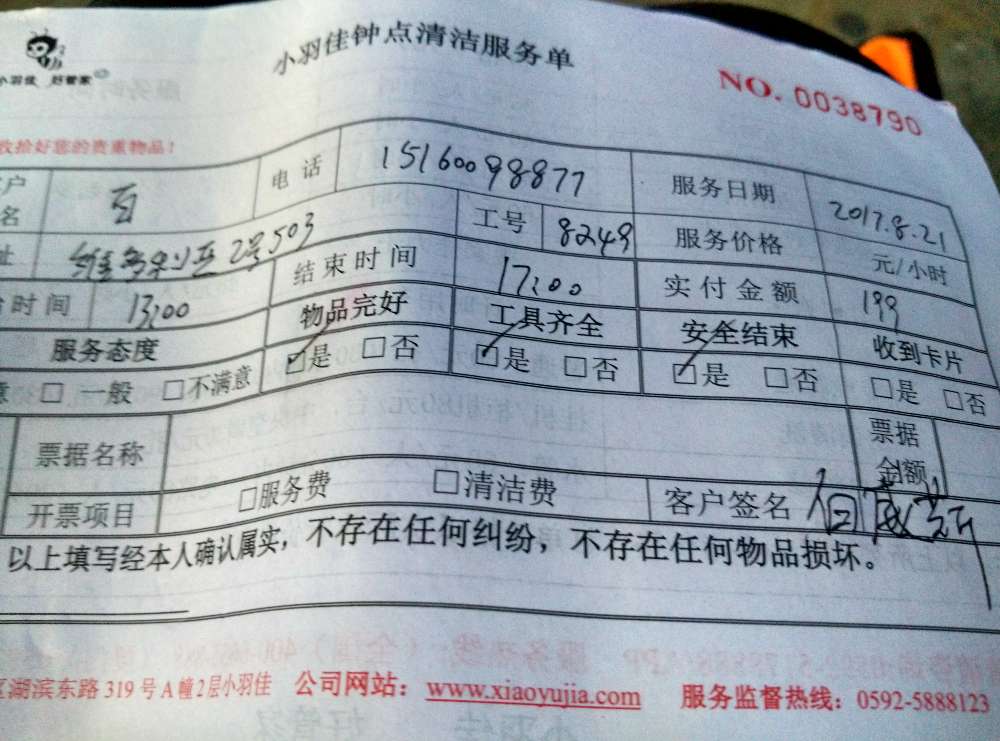 小羽佳 好管家
小羽佳钟点清洁服务单
NO. 0038790
收拾好您的贵重物品!
客户 名 电话 15160098877 服务日期 2017.8.21
址 2号503 工号 8249 服务价格 元/小时
时间 13:00 结束时间 17:00 实付金额 199
服务态度 物品完好 工具齐全 安全结束 收到卡片
意 □一般 □不满意 ☑是 □否 ☑是 □否 ☑是 □否 □是 □否
票据名称 票据金额
开票项目 □服务费 □清洁费 客户签名
以上填写经本人确认属实，不存在任何纠纷，不存在任何物品损坏。
区湖滨东路 319 号 A 幢 2 层小羽佳 公司网站：www.xiaoyujia.com 服务监督热线：0592-5888123